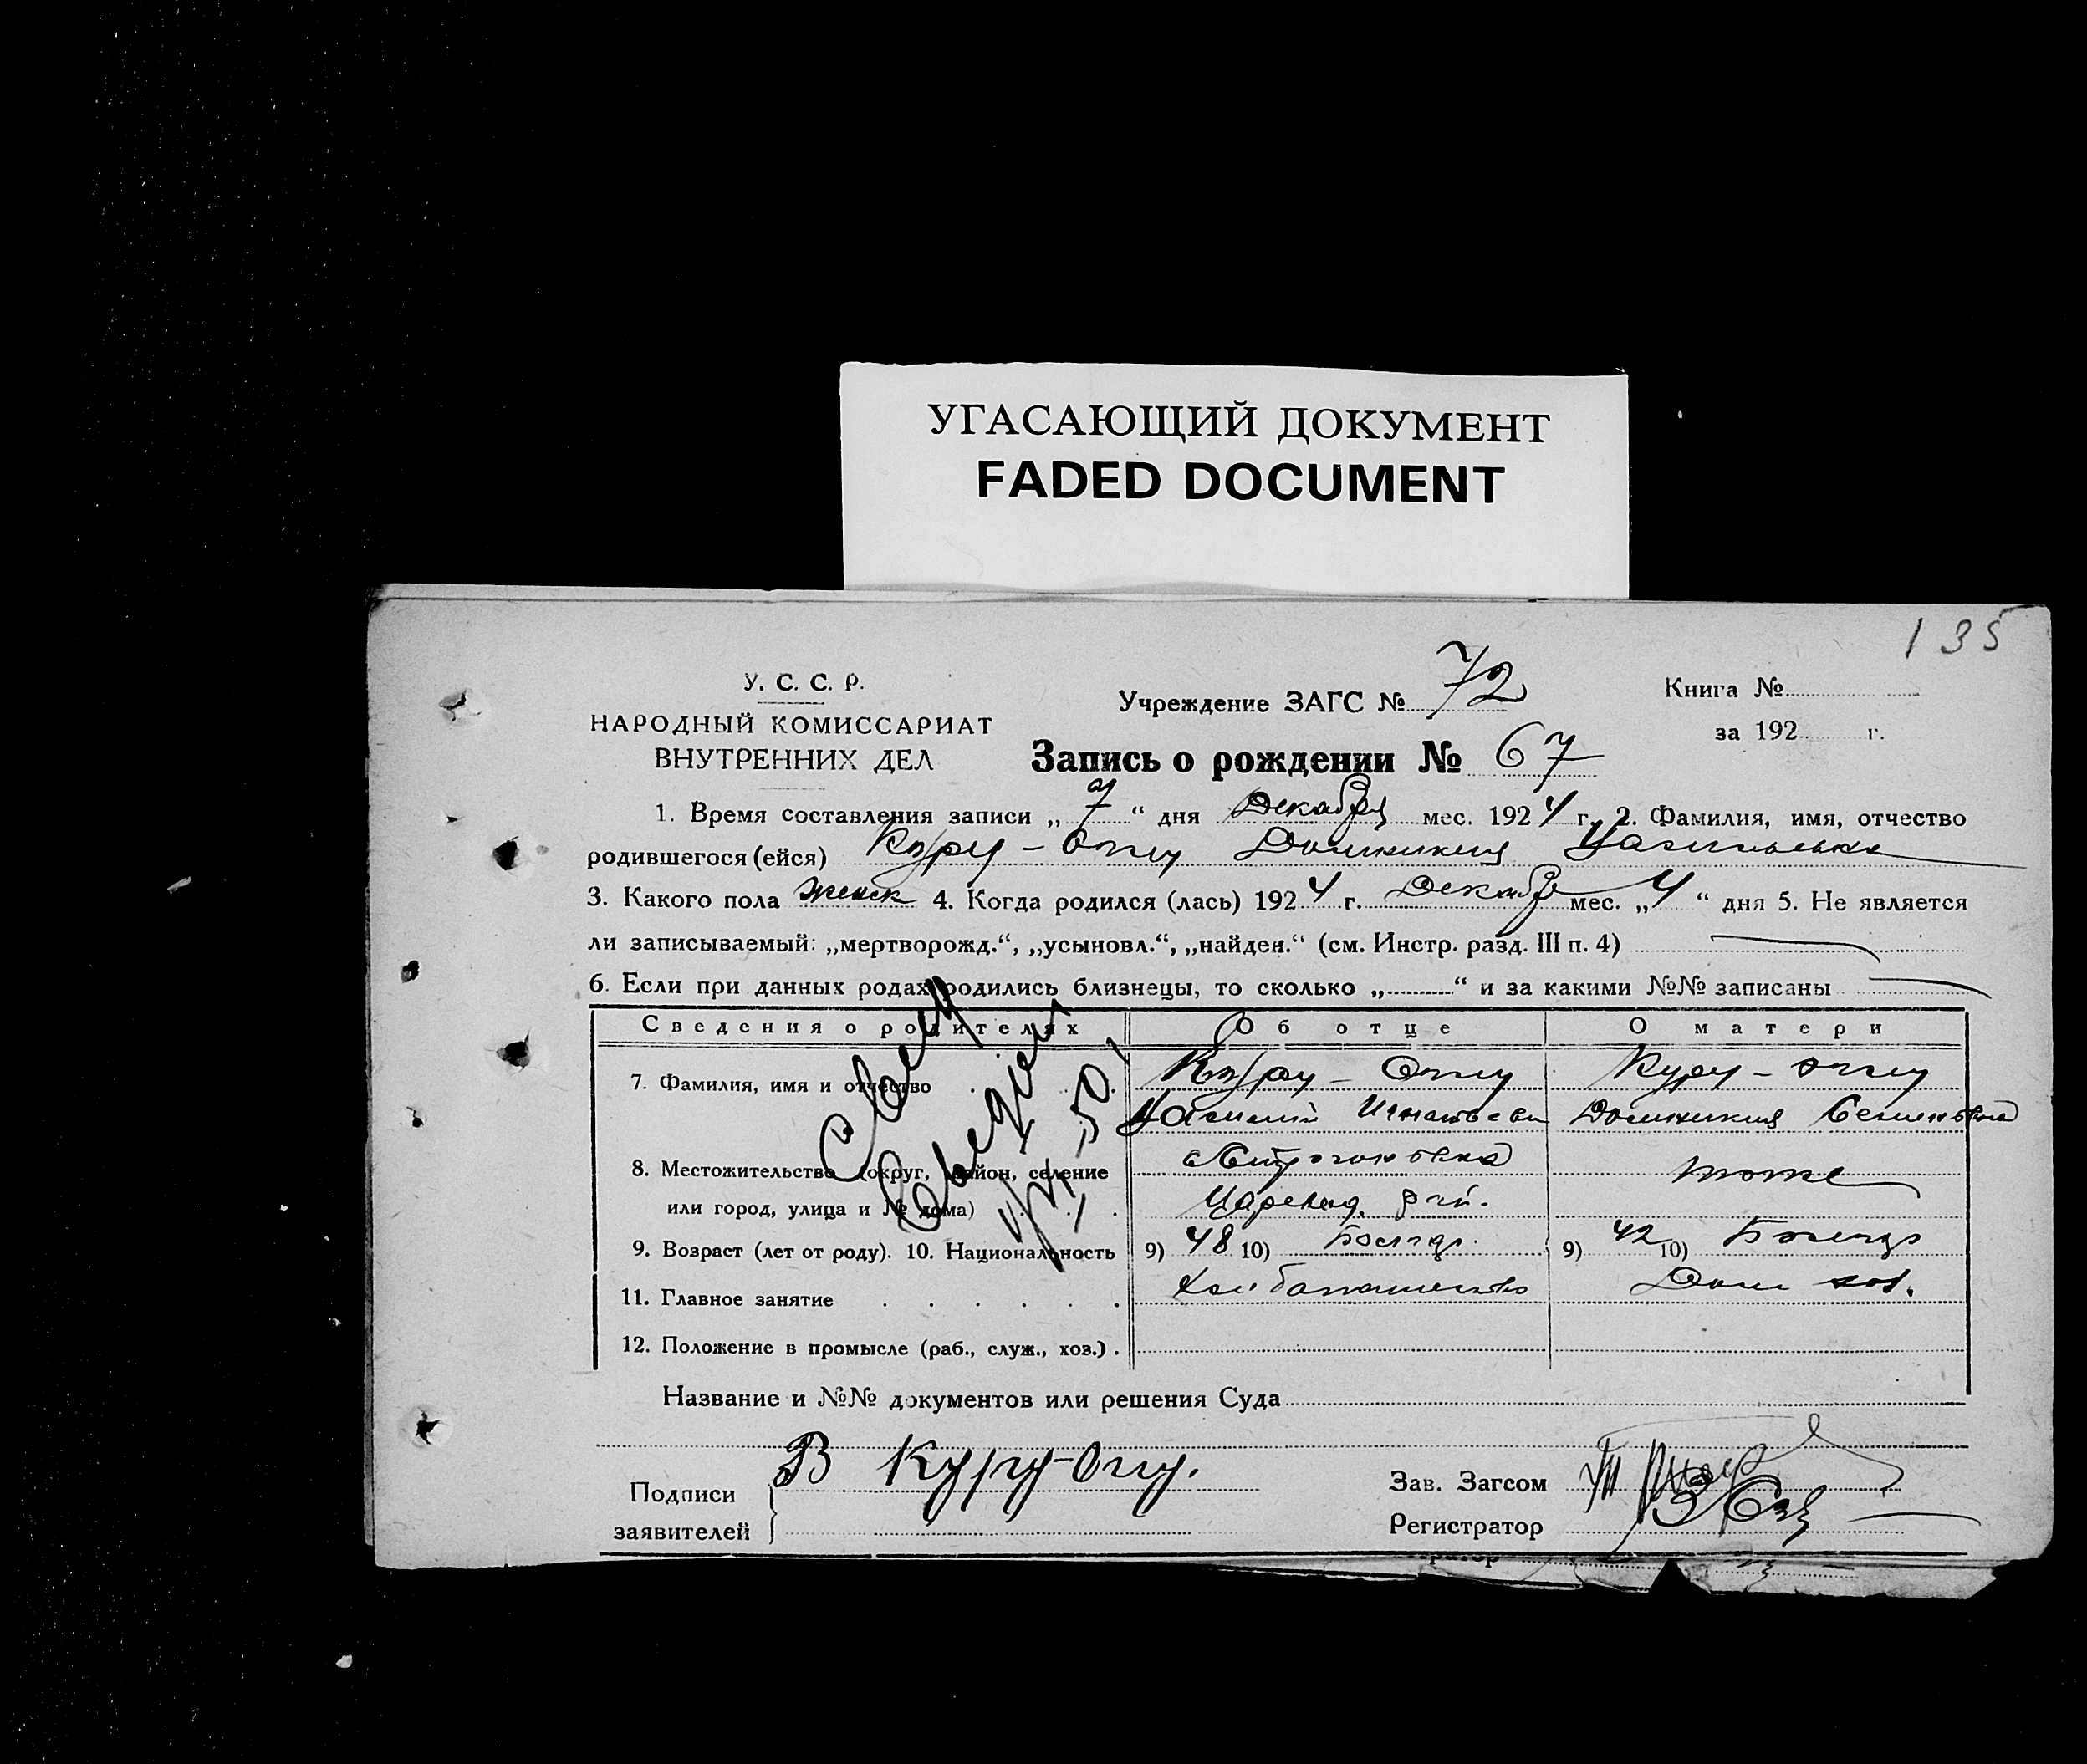 УГАСАЮЩИЙ ДОКУМЕНТ
FADED DOCUMENT
135
У. С. С. Р.
НАРОДНЫЙ КОМИССАРИАТ
ВНУТРЕННИХ ДЕЛ
Учреждение ЗАГС № 72
Книга №
за 192 г.
Запись о рождении № 67
1. Время составления записи „ 7 “ дня Декабря мес. 1924 г. 2. Фамилия, имя, отчество
родившегося (ейся) Куру-Оглу Домникия
3. Какого пола женск 4. Когда родился (лась) 1924 г. Декабр мес. „ 4 “ дня 5. Не является
ли записываемый: „мертворожд.“, „усыновл.“, „найден.“ (см. Инстр. разд. III п. 4)
6. Если при данных родах родились близнецы, то сколько „ “ и за какими №№ записаны
Сведения о родителях Об отце О матери
7. Фамилия, имя и отчество
Куру-Оглу
Игнатьеви
Куру-оглу
Домникия Семеновна
8. Местожительство (округ, район, селение
или город, улица и № дома)
рай.
тоже
9. Возраст (лет от роду). 10. Национальность 9) 48 10) 9) 42 10)
11. Главное занятие Хлебопашество Дом хоз.
12. Положение в промысле (раб., служ., хоз.)
50
Название и №№ документов или решения Суда
Подписи
заявителей
В Куру-Оглу.
Зав. Загсом
Регистратор